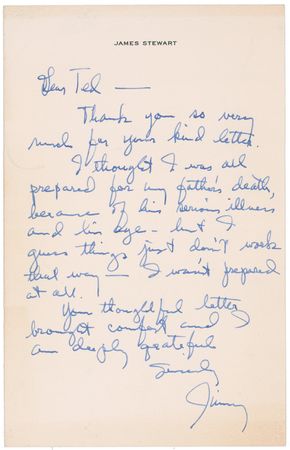 JAMES STEWART
Dear Ted —
Thank you so very
much for your kind letter.
I thought I was all
prepared for my father's death,
because of his serious illness
and his age - but I
guess things just don't work
that way — I wasn't prepared
at all.
Your thoughtful letter
brought comfort and
am deeply grateful
Sincerely
Jimmy